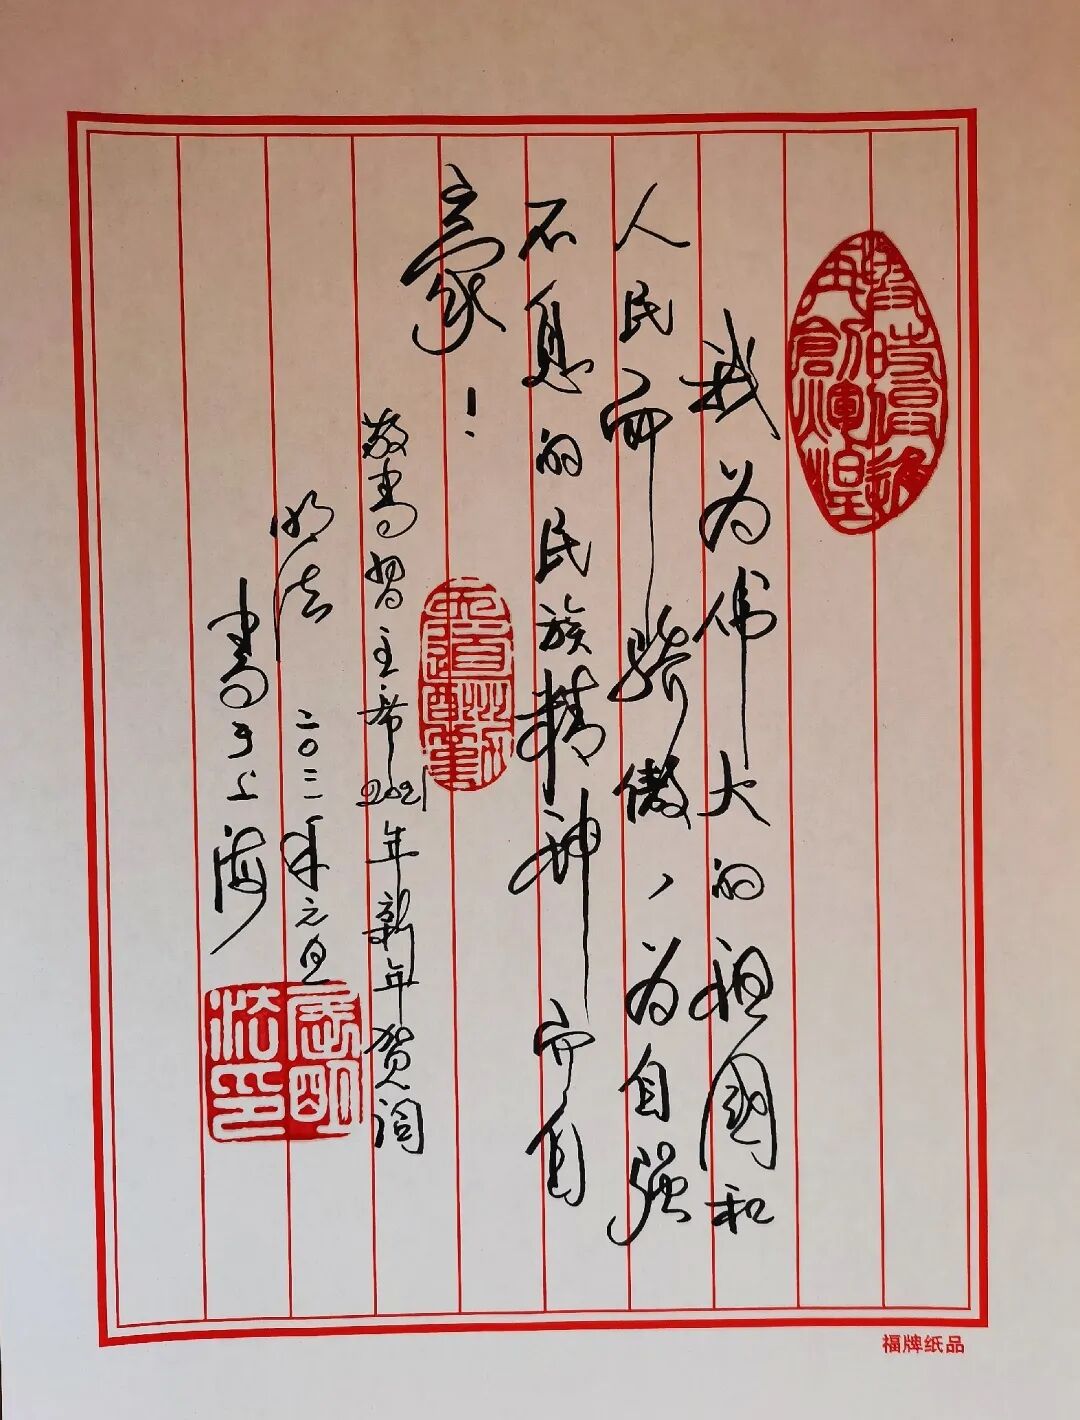 我为伟大的祖国和
人民而骄傲，为自强
不息的民族精神而自
豪！
敬书习主席2021年新年贺词
明法 二〇二一年元旦
书于上海
与时俱进
再創輝煌
明
法印
福牌纸品